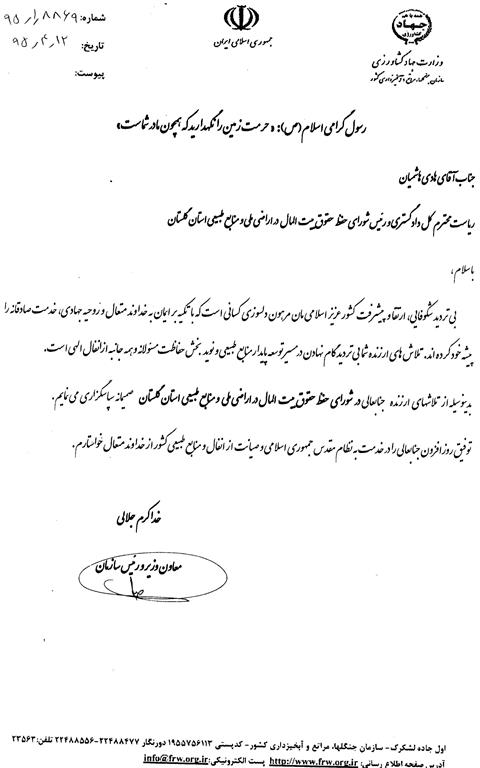 شماره: ۹۵/۱/۸۸۶۹
تاریخ: ۹۵/۴/۱۲
پیوست:
جمهوری اسلامی ایران
همه با هم
جهاد
سازندگی
وزارت جهاد کشاورزی
سازمان جنگلها، مراتع و آبخیزداری کشور
رسول گرامی اسلام (ص): «حرمت زمین را نگهدارید که همچون مادر شماست»
جناب آقای هادی هاشمیان
ریاست محترم کل دادگستری و رئیس شورای حفظ حقوق بیت المال در اراضی ملی و منابع طبیعی استان گلستان
با سلام،
بی تردید شکوفایی، ارتقاء و پیشرفت کشور عزیز اسلامی مان مرهون دلسوزی کسانی است که با تکیه بر ایمان به خداوند متعال و روحیه جهادی، خدمت صادقانه را
پیشه خود کرده اند. تلاش های ارزنده شما بی تردید گام نهادن در مسیر توسعه پایدار منابع طبیعی و نوید بخش حفاظت مسئولانه و همه جانبه از انفال الهی است.
بدینوسیله از تلاشهای ارزنده جنابعالی در شورای حفظ حقوق بیت المال در اراضی ملی و منابع طبیعی استان گلستان صمیمانه سپاسگزاری می نمایم.
توفیق روز افزون جنابعالی را در خدمت به نظام مقدس جمهوری اسلامی و صیانت از انفال و منابع طبیعی کشور از خداوند متعال خواستارم.
خداکرم جلالی
معاون وزیر و رئیس سازمان
اول جاده لشگرک- سازمان جنگلها، مراتع و آبخیزداری کشور- کدپستی ۱۹۵۵۷۵۶۱۱۳ دورنگار ۲۲۴۸۸۴۷۷-۲۲۴۸۸۵۵۶ تلفن: ۲۳۵۶۳
آدرس صفحه اطلاع رسانی: http://www.frw.org.ir پست الکترونیکی: info@frw.org.ir